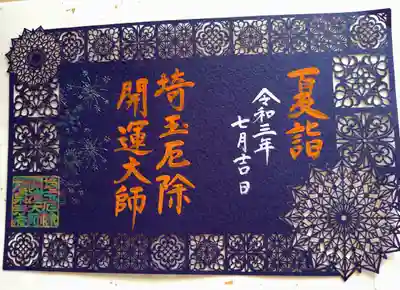 夏詣
令和三年
七月吉日
埼玉厄除
開運大師